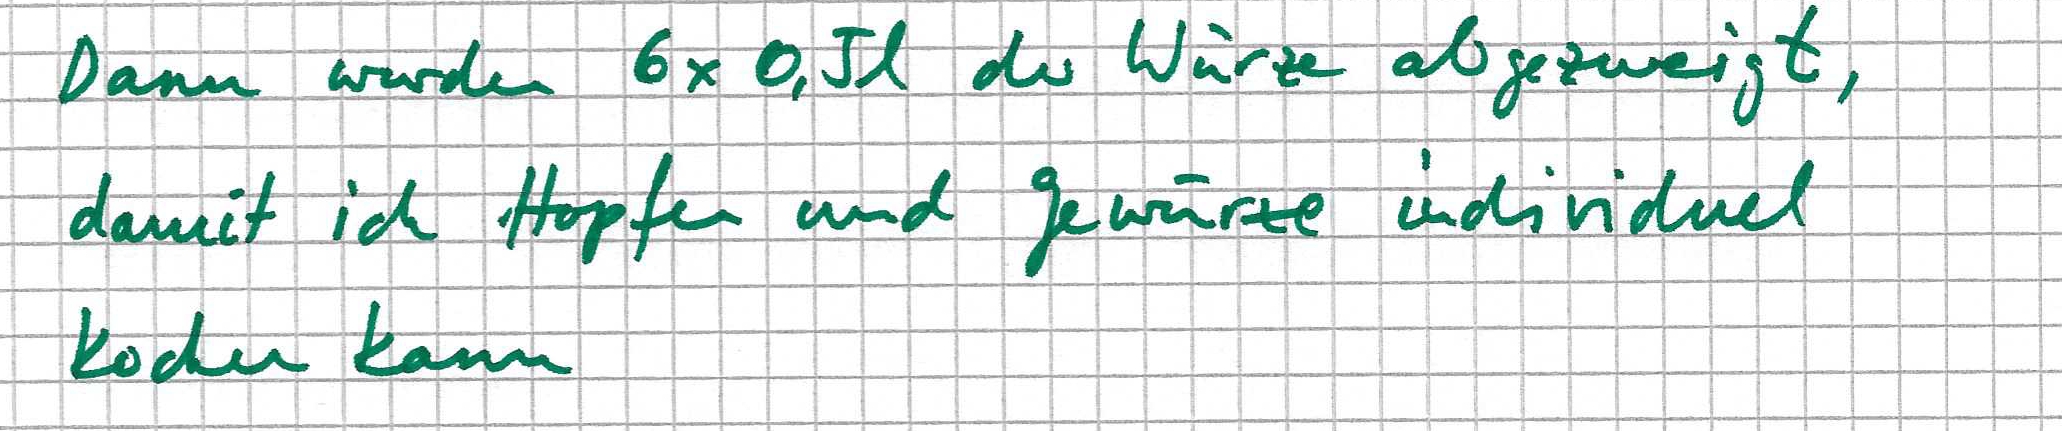 Dann wurden 6x 0,5l der Würze abgezweigt,
damit ich Hopfen und Gewürze individuel
kochen kann